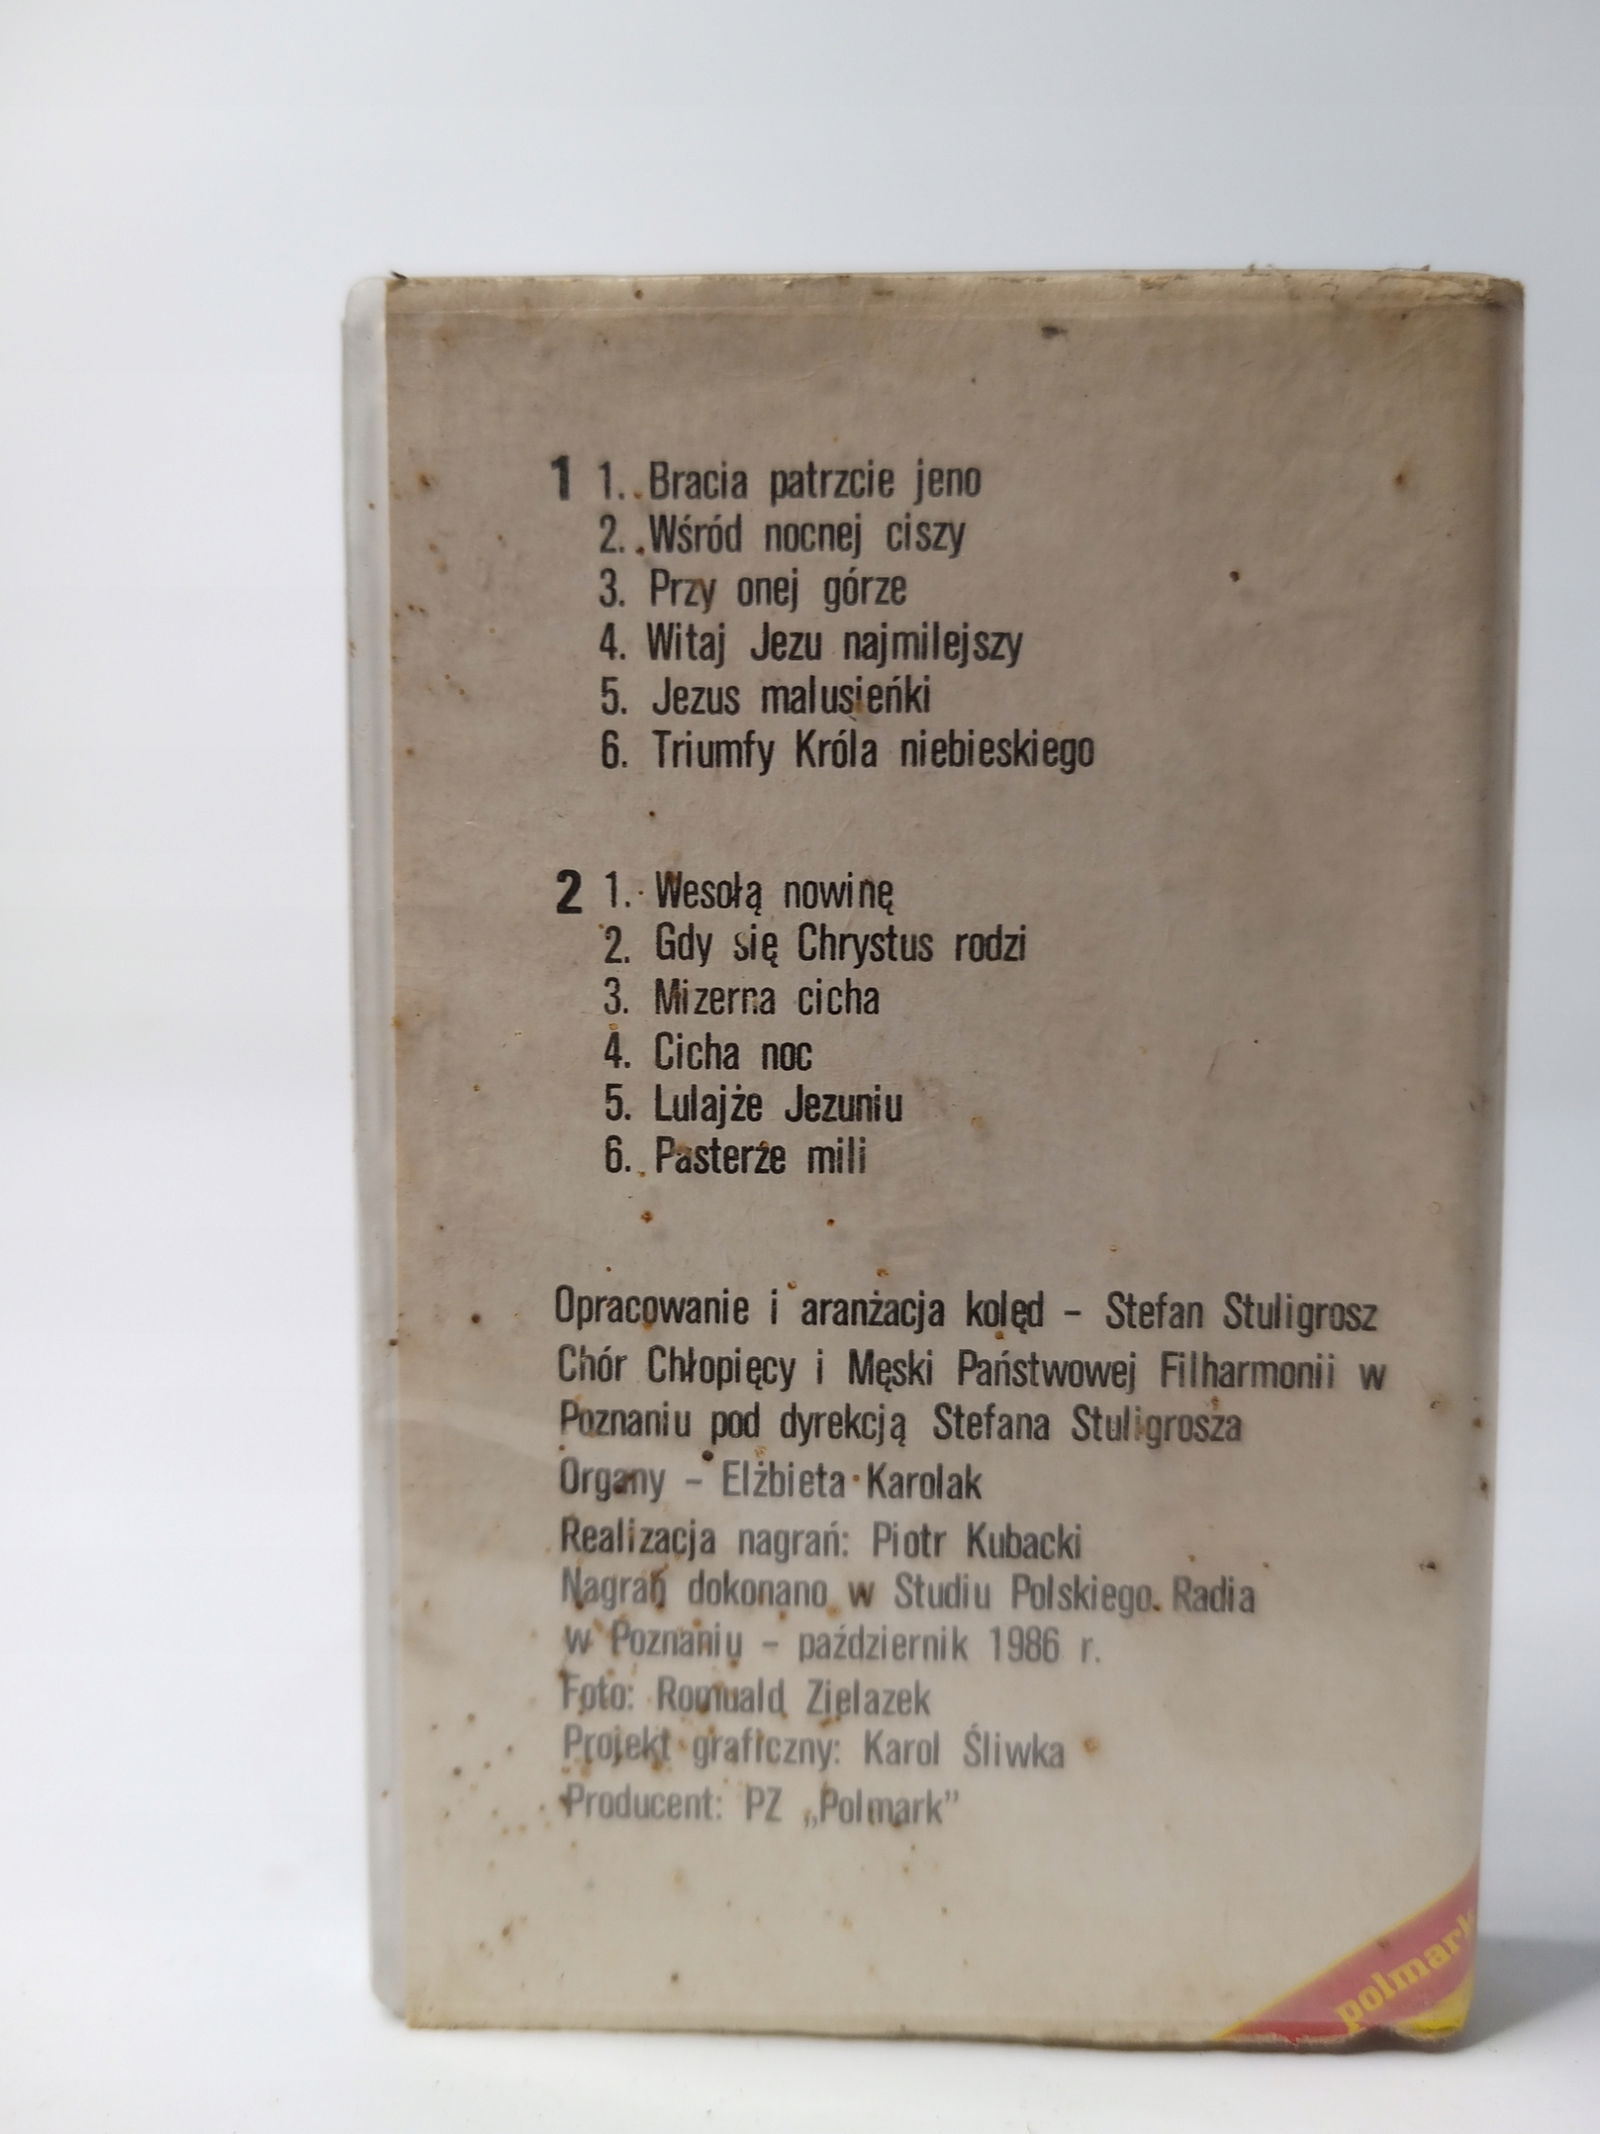 1 1. Bracia patrzcie jeno
2. Wśród nocnej ciszy
3. Przy onej górze
4. Witaj Jezu najmilejszy
5. Jezus malusieńki
6. Triumfy Króla niebieskiego
2 1. Wesołą nowinę
2. Gdy się Chrystus rodzi
3. Mizerna cicha
4. Cicha noc
5. Lulajże Jezuniu
6. Pasterze mili
Opracowanie i aranżacja kolęd – Stefan Stuligrosz
Chór Chłopięcy i Męski Państwowej Filharmonii w
Poznaniu pod dyrekcją Stefana Stuligrosza
Organy – Elżbieta Karolak
Realizacja nagrań: Piotr Kubacki
Nagrań dokonano w Studiu Polskiego Radia
w Poznaniu – październik 1986 r.
Foto: Romuald Zielazek
Projekt graficzny: Karol Śliwka
Producent: PZ „Polmark”
polmark